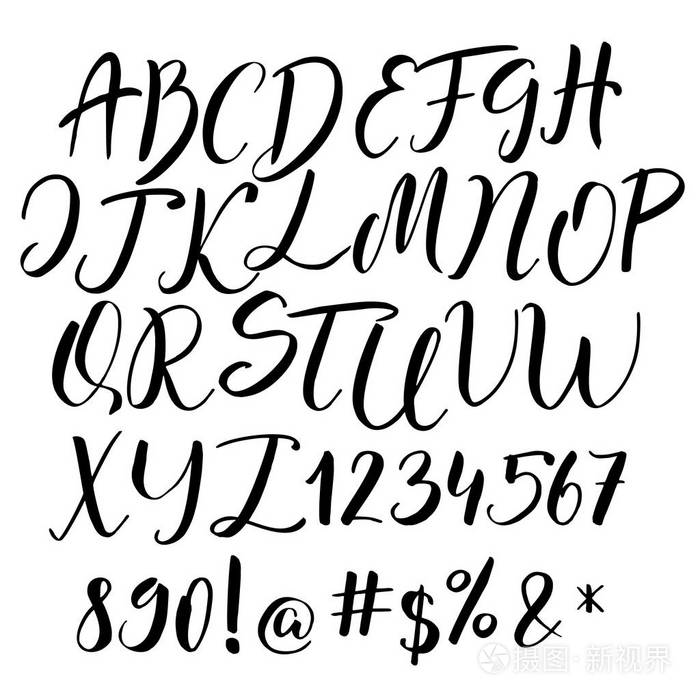 ABCDEFGH
IJKLMNOP
QRSTUVW
XYZ1234567
890!@#$%&*
摄图·新视界